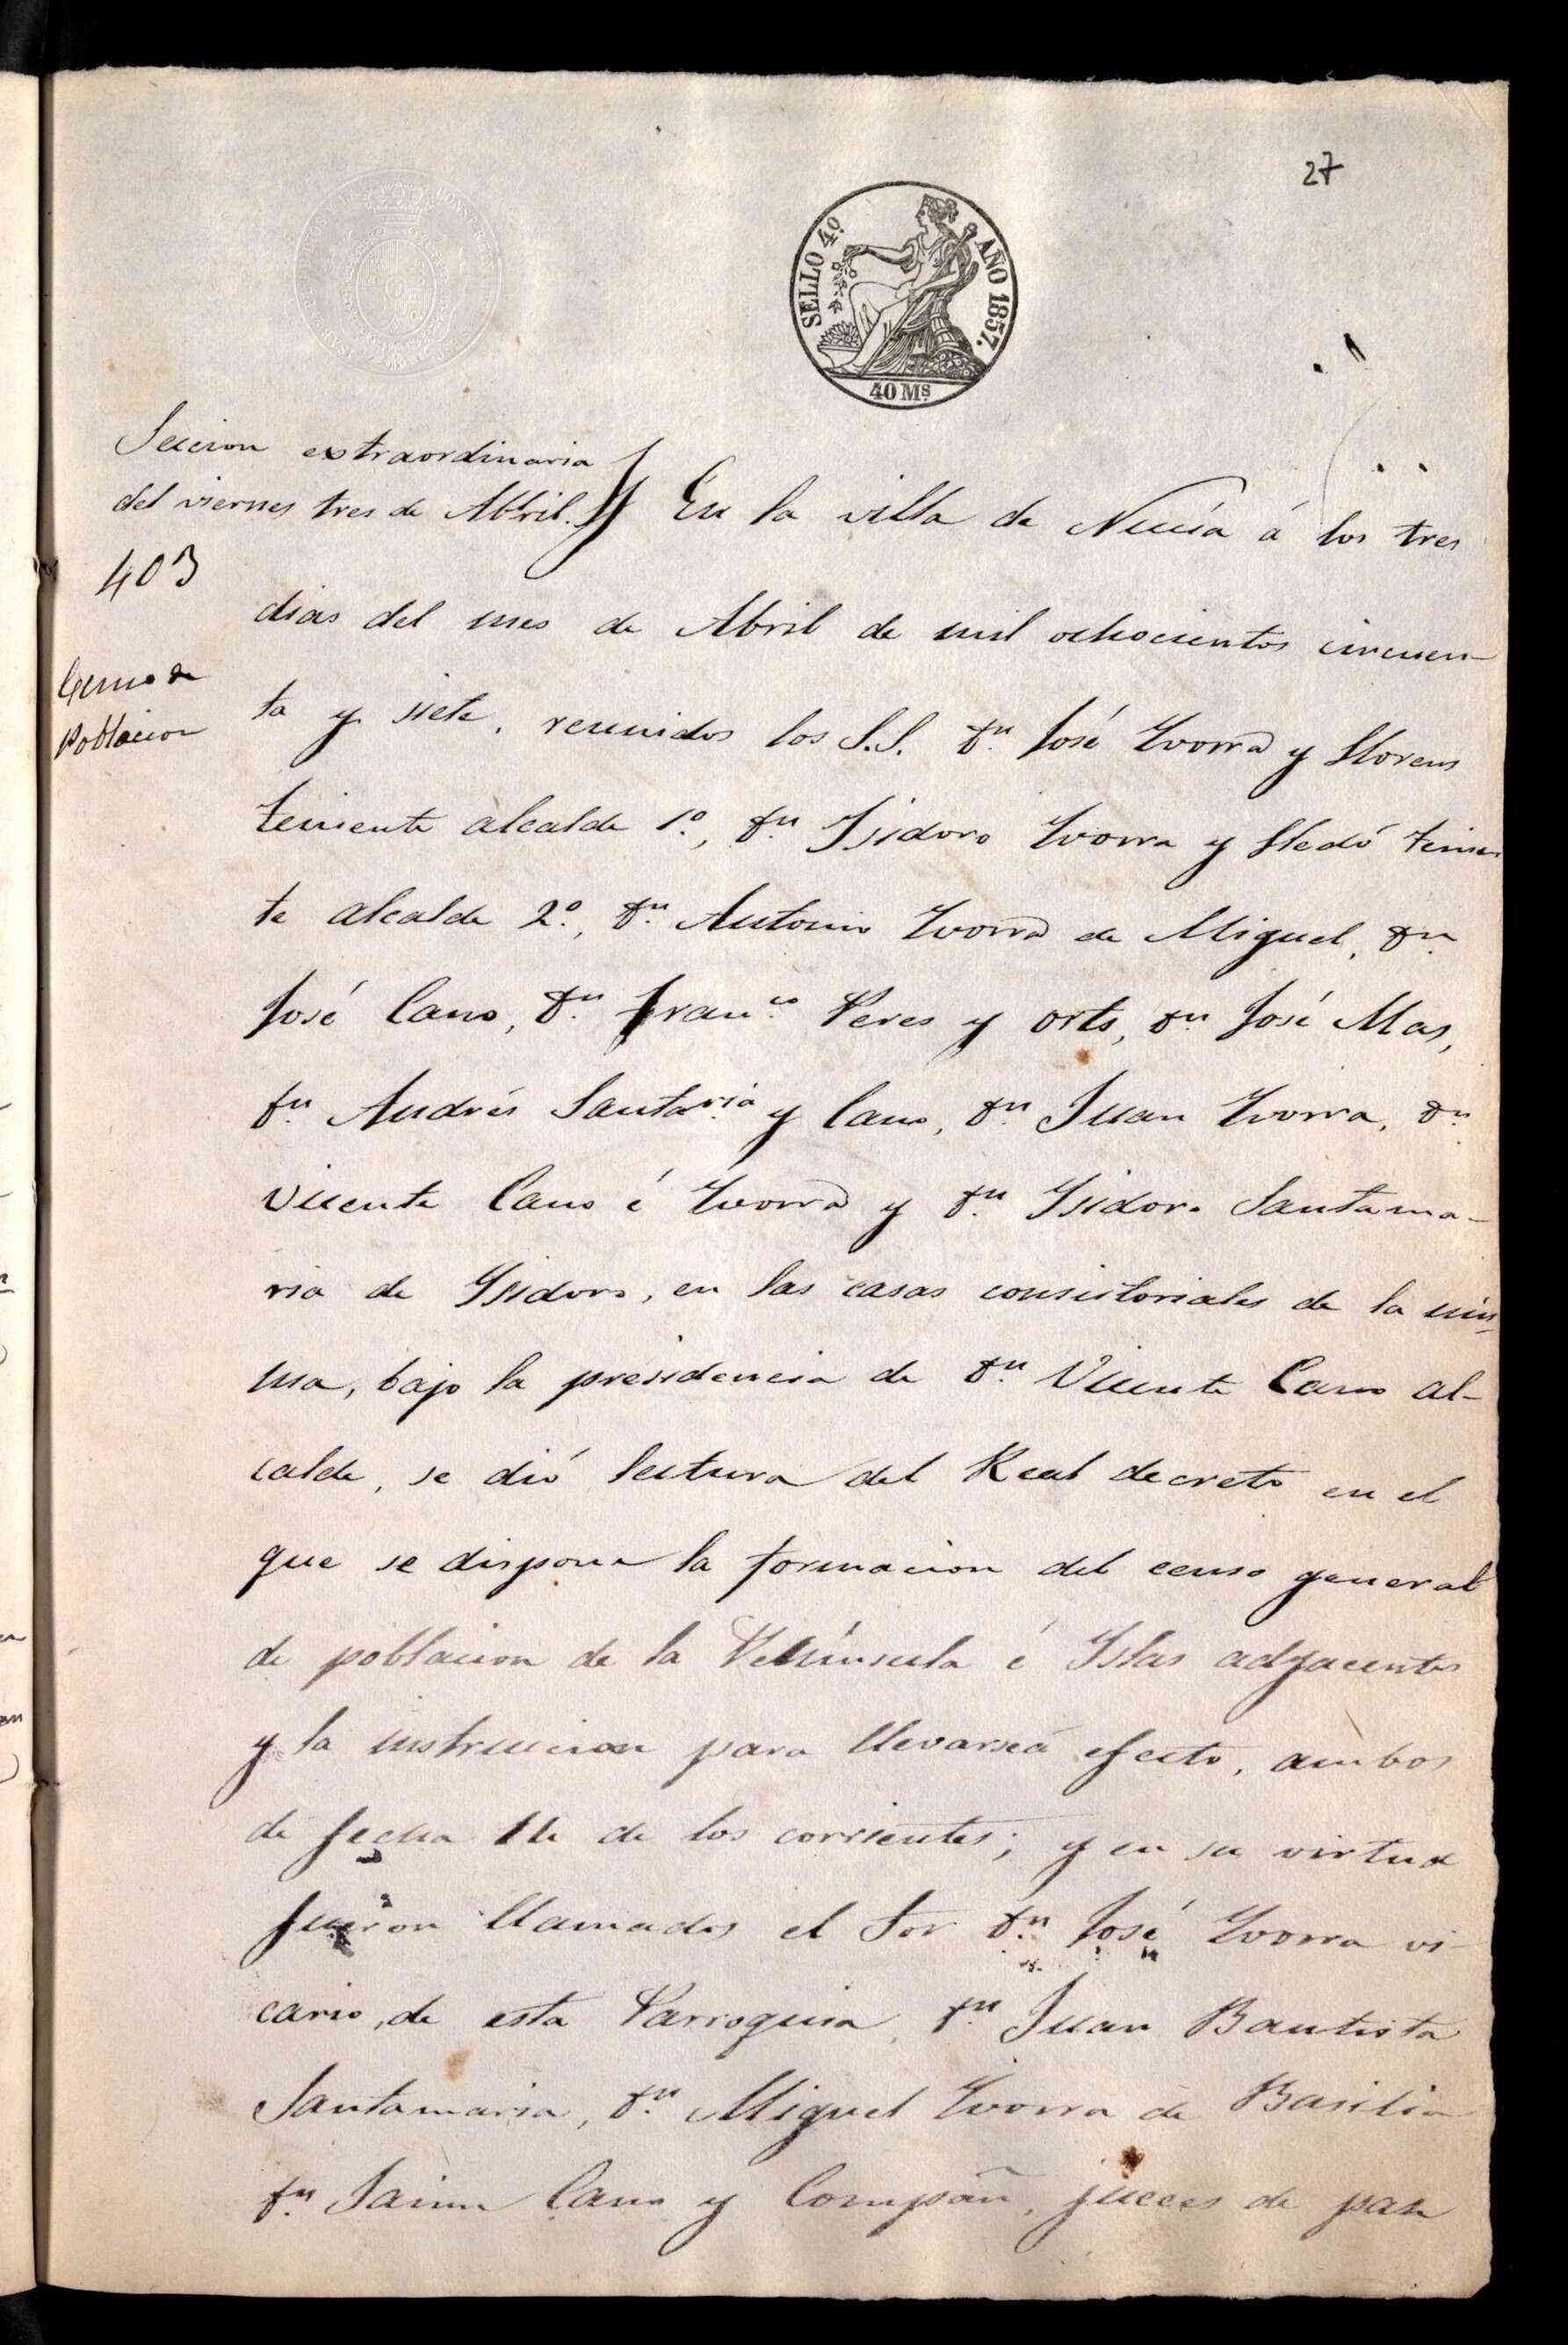 27
SELLO 4º AÑO 1857.
40 Ms
Secion extraordinaria
del viernes tres de Abril.
403
Censo de
poblacion
En la villa de Nucía á los tres
dias del mes de Abril de mil ochocientos cincuen-
ta y siete, reunidos los S.S. Dn José Yvorra y Llorens
teniente alcalde 1º, Dn Ysidoro Yvorra y Lledó tenien
te alcalde 2º, Dn Antonio Yvorra de Miguel, Dn
José Cano, Dn Franco Peres y orts, Dn José Mas,
Dn Andrés Santaria y Cano, Dn Juan Yvorra, Dn
Vicente Cano é Yvorra y Dn Ysidoro Santama-
ria de Ysidoro, en las casas consistoriales de la mis
ma, bajo la presidencia de Dn Vicente Cano al-
calde, se dió lectura del Real decreto en el
que se dispone la formacion del censo general
de poblacion de la Península é Yslas adyacentes
y la instruccion para llevarseá efecto, ambos
de fecha 14 de los corrientes; y en su virtud
fueron llamados el Sor Dn José Yvorra vi
cario, de esta Parroquia, Dn Juan Bautista
Santamaria, Dn Miguel Yvorra de Basilia
Dn Jaime Cano y Compañ, jueces de paz